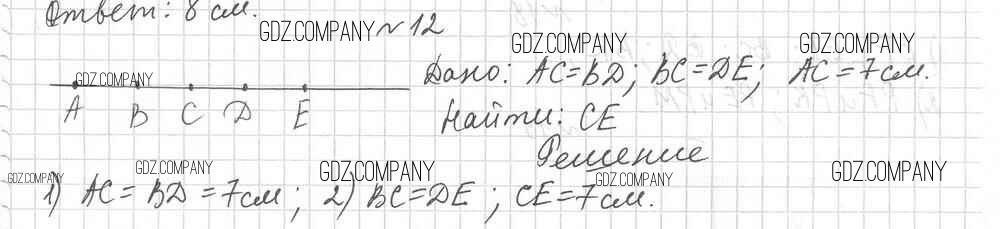 Ответ: 8 см.
GDZ.COMPANY № 12
GDZ.COMPANY
GDZ.COMPANY
GDZ.COMPANY
Дано: AC=BD; BC=DE; AC=7см.
A B C D E
Найти: CE
Решение
GDZ.COMPANY
GDZ.COMPANY
GDZ.COMPANY
GDZ.COMPANY
GDZ.COMPANY
1) AC=BD=7см; 2) BC=DE; CE=7см.